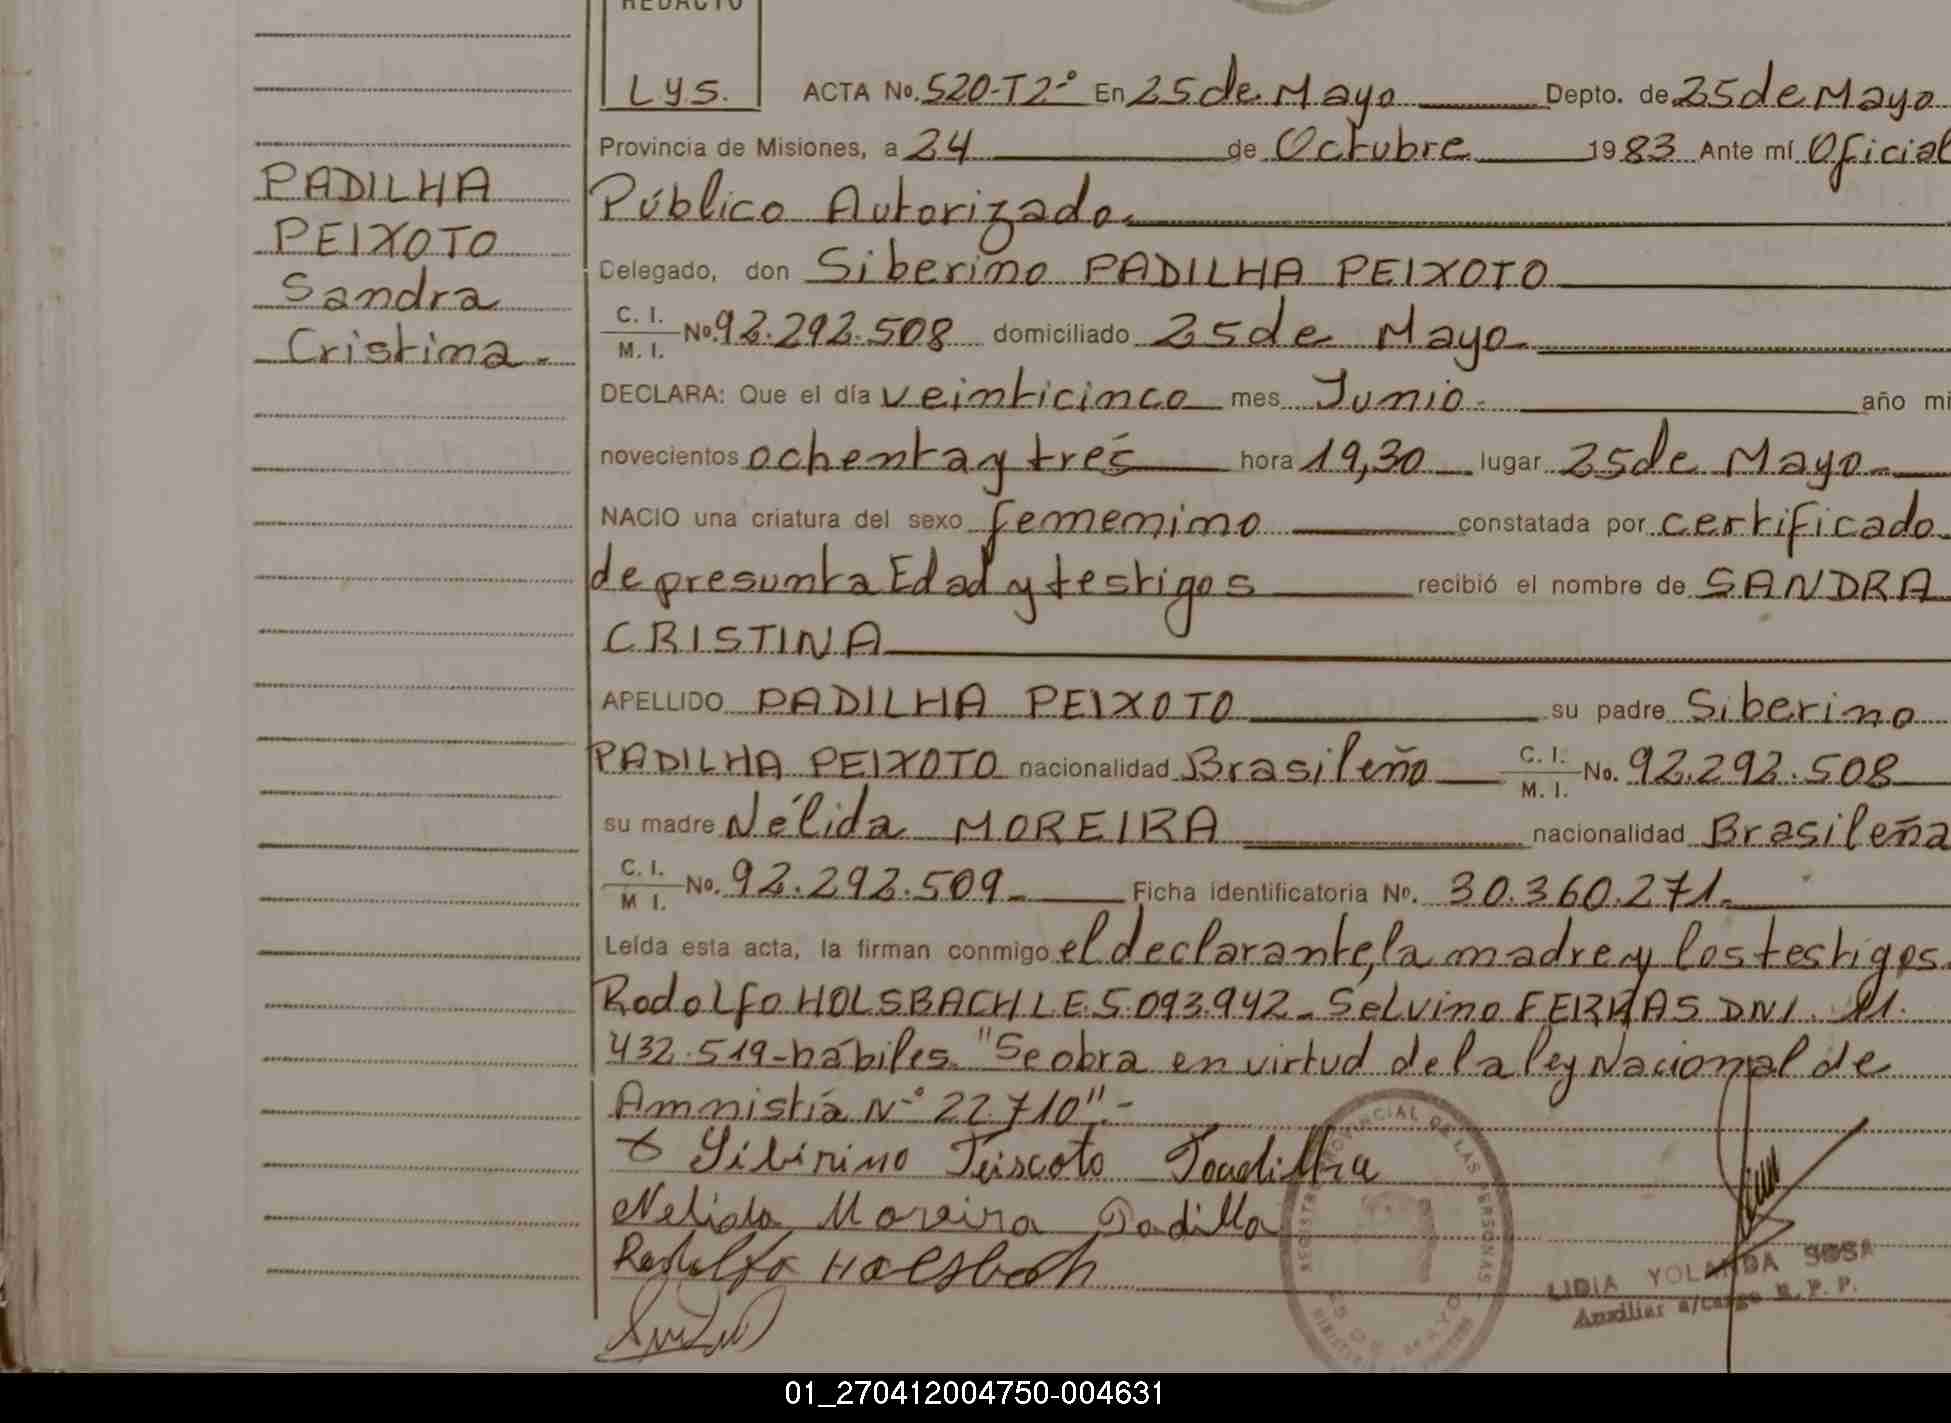 REDACTO
L.Y.S.
ACTA No. 520-T2° En 25 de Mayo Depto. de 25 de Mayo
Provincia de Misiones, a 24 de Octubre 1983 Ante mí Oficial
Público Autorizado.
PADILHA
PEIXOTO
Sandra
Cristina.-
Delegado, don Siberino PADILHA PEIXOTO
C. I.
M. I. No. 92.292.508 domiciliado 25 de Mayo.
DECLARA: Que el día veinticinco mes Junio.- año mi
novecientos ochenta y tres hora 19,30 lugar 25 de Mayo.
NACIO una criatura del sexo femenino constatada por certificado
de presunta Edad y testigos recibió el nombre de SANDRA
CRISTINA
APELLIDO PADILHA PEIXOTO su padre Siberino
PADILHA PEIXOTO nacionalidad Brasileño C. I. M. I. No. 92.292.508
su madre Nélida MOREIRA nacionalidad Brasileña
C. I.
M I. No. 92.292.509.- Ficha identificatoria No. 30.360.271.
Leída esta acta, la firman conmigo el declarante, la madre y los testigos
Rodolfo HOLSBACH L.E. 5.093.942. Selvino FERRAS DNI. 11.
432.519-hábiles. "Se obra en virtud de la ley Nacional de
Amnistía N° 22.710".-
Sibirino Peiscoto Padilha
Nelida Moreira Padilla
Rodolfo Holsbach
REGISTRO PROVINCIAL DE LAS PERSONAS
25 DE MAYO
LIDIA YOLANDA SOSA
Auxiliar a/cargo R. P. P.
01_270412004750-004631